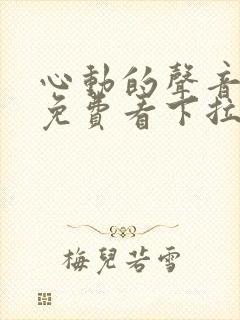 心動的聲音
免費看下拉
梅兒若雪